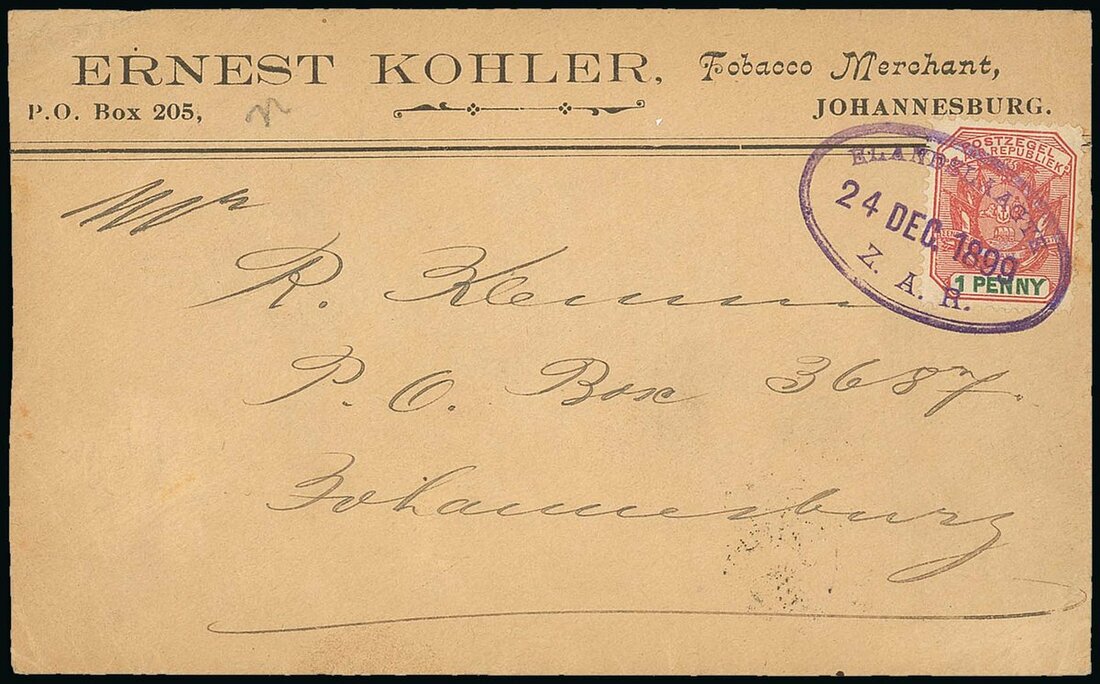 ERNEST KOHLER, Tobacco Merchant,
P.O. Box 205, JOHANNESBURG.
POSTZEGEL
REPUBLIEK
1 PENNY
ELANDSLAAGTE
24 DEC. 1899
Z. A. R.
Mr
R. Klemm
P. O. Box 3687.
Johannesburg